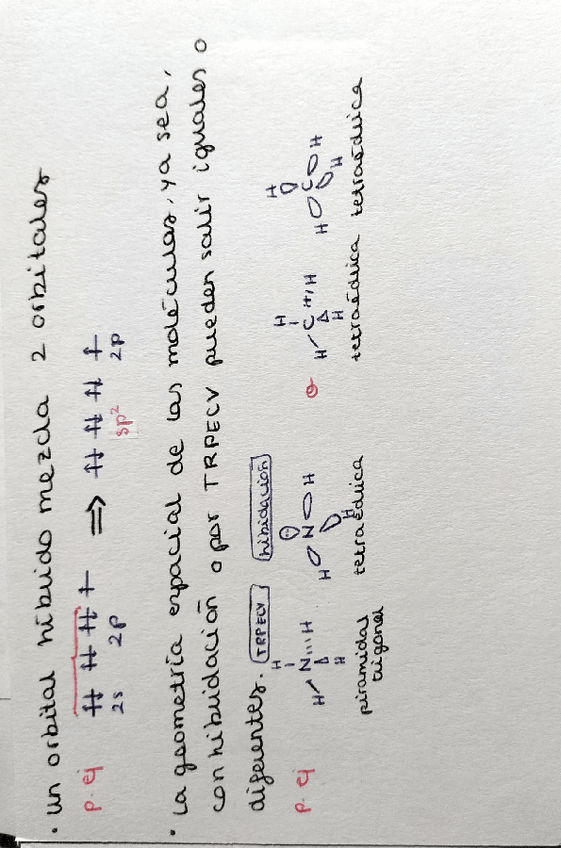 · Un orbital híbrido mezcla 2 orbitales
p. ej ⥮ ⥮ ⥮ ↿ ⇒ ⥮ ⥮ ⥮ ↿
2s 2p sp² 2p
· La geometría espacial de las moléculas, ya sea,
con hibridación o por TRPECV pueden salir iguales o
diferentes. TRPECV hibidación
p. ej H N H H H N H H o H C H H H H C H H
piramidal trigonal tetraédrica tetraédrica tetraédrica